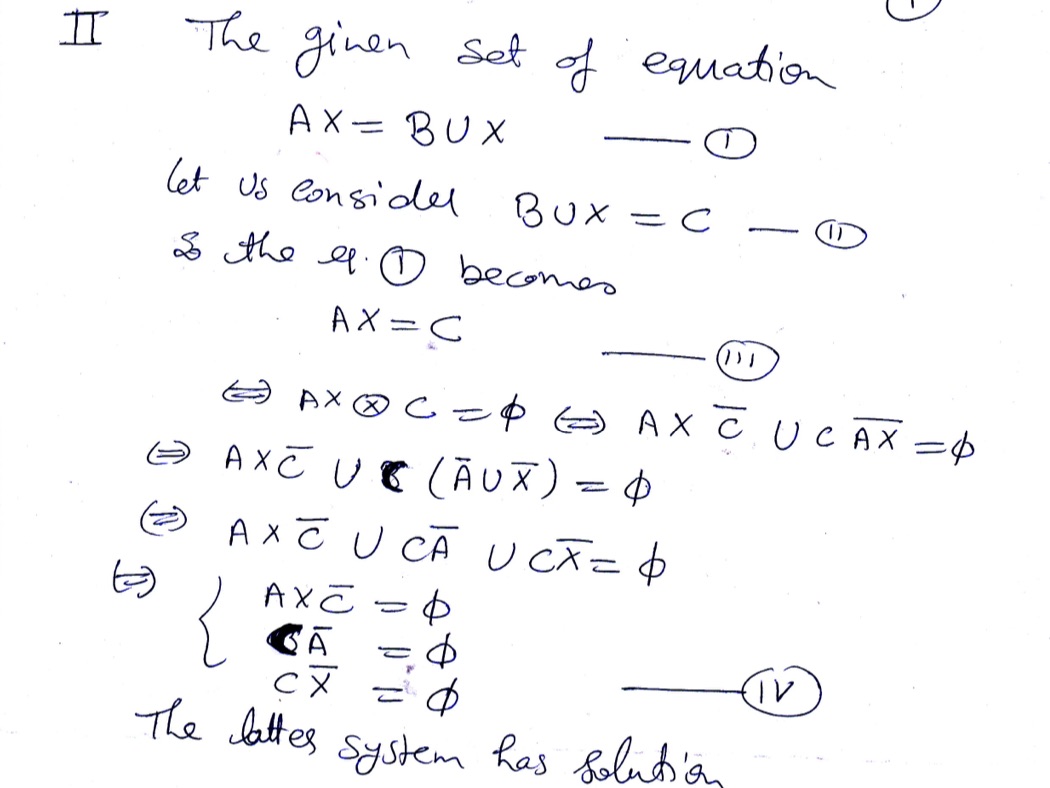 II The given set of equation
AX = B ∪ X —— (I)
Let us consider B∪X = C — (II)
& the eq. (I) becomes
AX = C —— (III)
⇔ AX ⊗ C = ϕ ⇔ A X C̅ ∪ C \overline{AX} = ϕ
⇔ A X C̅ ∪ C (A̅ ∪ X̅) = ϕ
⇔ A X C̅ ∪ C A̅ ∪ C X̅ = ϕ
⇔ { A X C̅ = ϕ
C A̅ = ϕ
C X̅ = ϕ —— (IV)
The latter system has solution